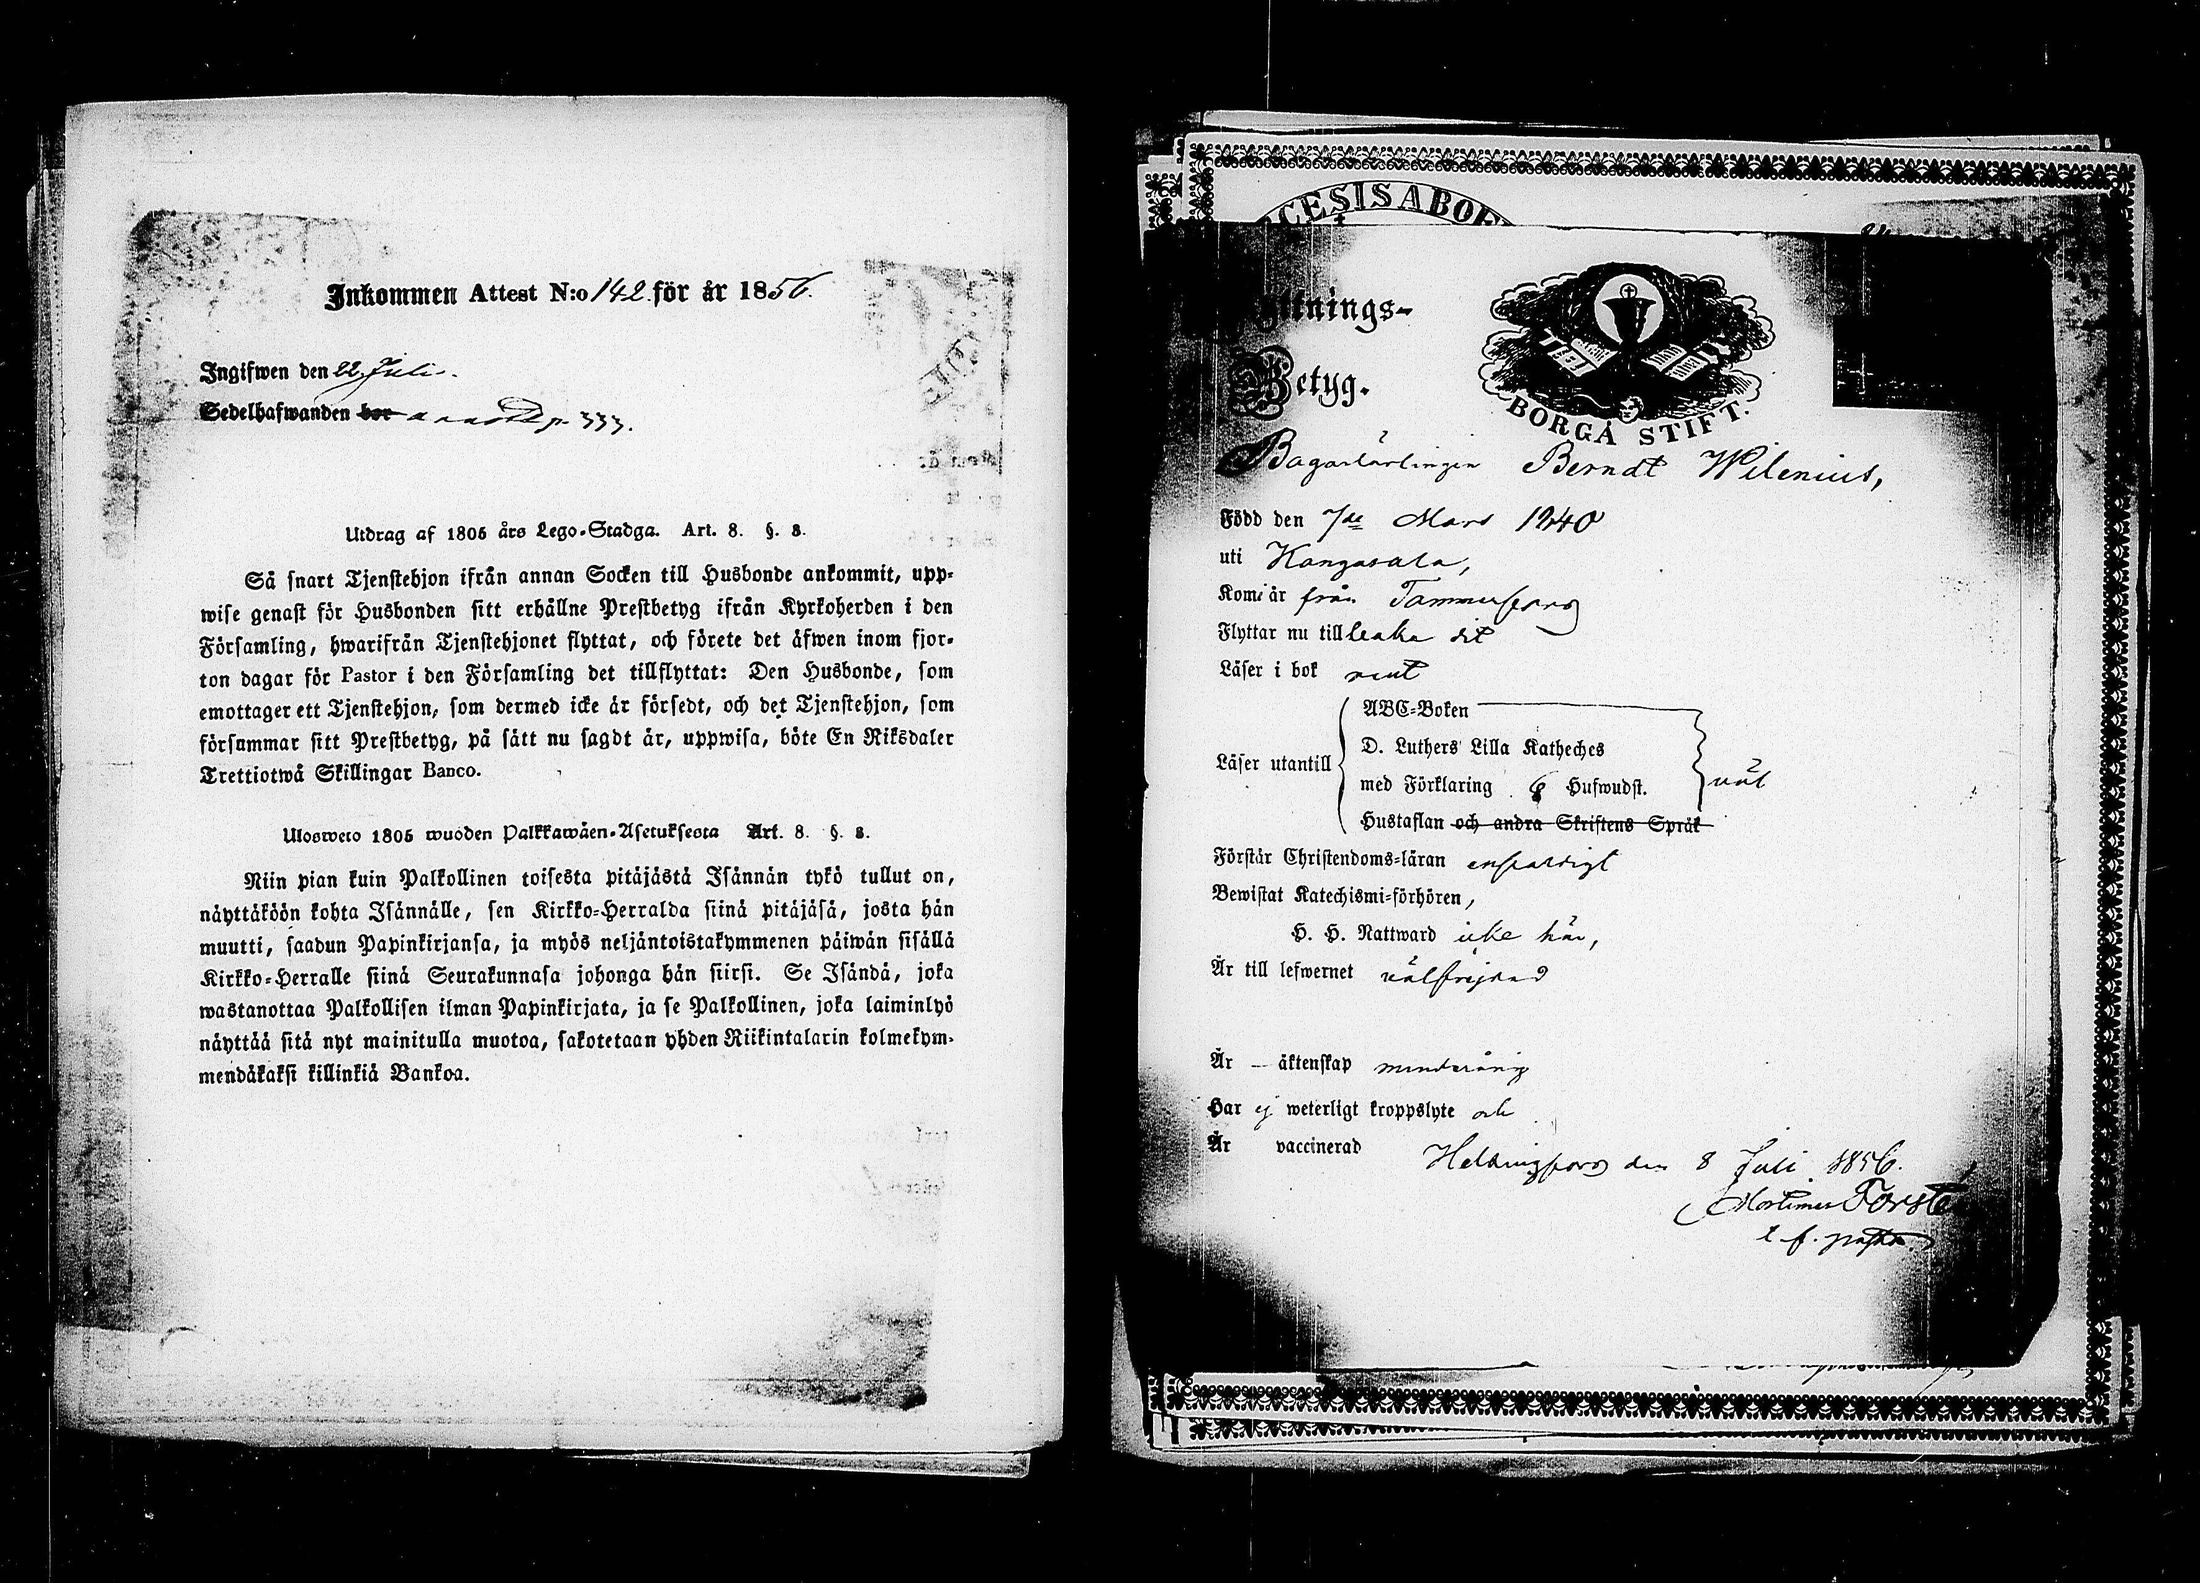 Inkommen Attest N:o 142 för år 1856.
Ingifwen den 22 Juli.
Sedelhafwanden bor p. 333.
Utdrag af 1805 års Lego-Stadga. Art. 8. §. 8.
Så snart Tjenstehjon ifrån annan Socken till Husbonde ankommit, upp-
wise genast för Husbonden sitt erhållne Prestbetyg ifrån Kyrkoherden i den
Församling, hwarifrån Tjenstehjonet flyttat, och förete det äfwen inom fjor-
ton dagar för Pastor i den Församling det tillflyttat: Den Husbonde, som
emottager ett Tjenstehjon, som dermed icke är försedt, och det Tjenstehjon, som
försummar sitt Prestbetyg, på sätt nu sagdt är, uppwisa, böte En Riksdaler
Trettiotwå Skillingar Banco.
Ulosweto 1805 wuoden Palkkawäen-Asetuksesta Art. 8. §. 8.
Niin pian kuin Palkollinen toisesta pitäjästä Isännän tykö tullut on,
näyttäköön kohta Isännälle, sen Kirkko-Herralda siinä pitäjäsä, josta hän
muutti, saadun Papinkirjansa, ja myös neljäntoistakymmenen päiwän sisällä
Kirkko-Herralle siinä Seurakunnasa johonga hän siirsi. Se Isändä, joka
wastanottaa Palkollisen ilman Papinkirjata, ja se Palkollinen, joka laiminlyö
näyttää sitä nyt mainitulla muotoa, sakotetaan yhden Riikintalarin kolmekym-
mendäkaksi killinkiä Bankoa.
CESIS ABOE
ttnings-
Betyg.
BORGÅ STIFT.
Bagarlärlingen Berndt Wilenius,
Född den 7de Mars 1840
uti Kangasala,
Kom i år från Tammerfors
Flyttar nu till baka dit
Läser i bok rent
ABC-Boken
D. Luthers Lilla Katheches
Läser utantill
med Förklaring 6 Hufwudst.
väl
Hustaflan och andra Skriftens Språk
Förstår Christendoms-läran enfaldigt
Bewistat Katechismi-förhören,
H. H. Nattward icke här,
Är till lefwernet välfrejdad
Är — äktenskap minderårig
Har ej weterligt kroppslyte och
Är vaccinerad
Helsingfors den 8 Juli 1856.
Mortimer Forste
t. f. pastor